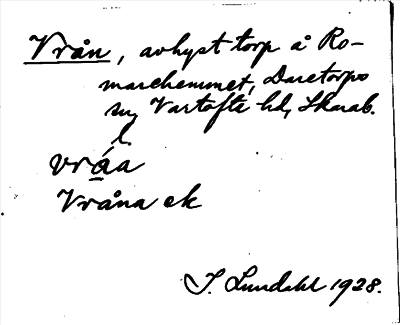 Vrån, avhyst torp å Ro-
marehemmet, Daretorps
sn, Vartofta hd, Skarab.
l
vråa
Vråna ek
I. Lundahl 1928.